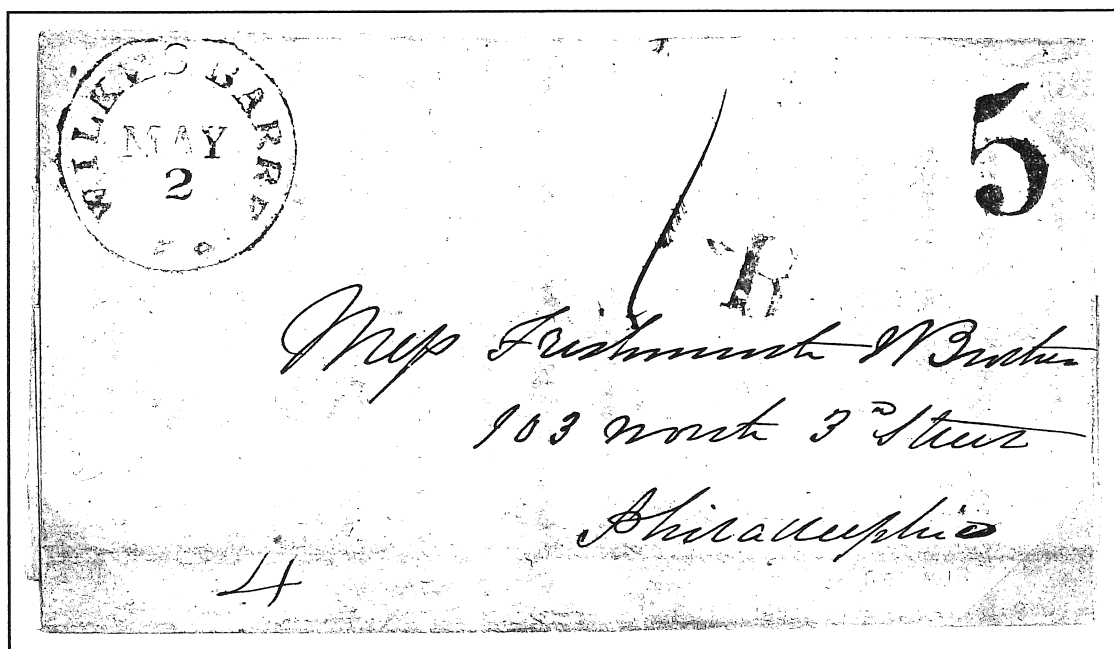 WILKES BARRE
MAY
2
5
R
Mess Frishmuth & Brother
103 North 3d Street
Philadelphia
4